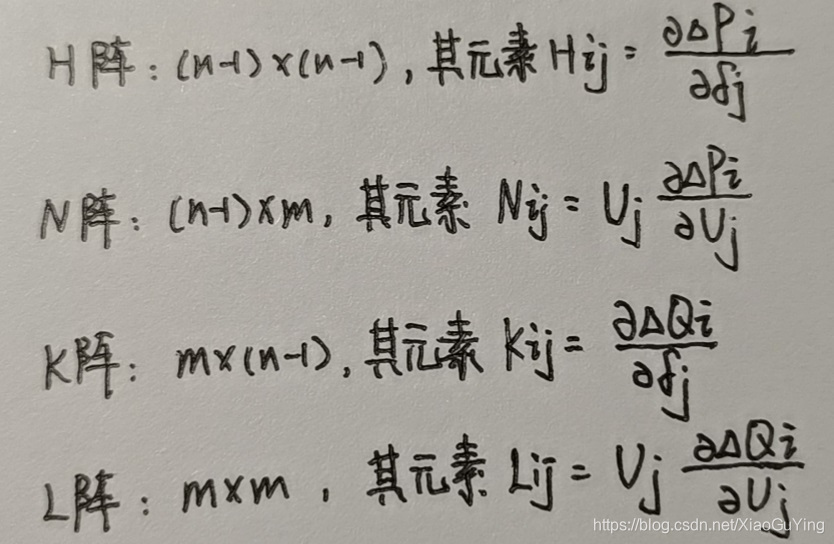 H阵：(n-1)×(n-1)，其元素 Hij = ∂ΔPi/∂δj
N阵：(n-1)×m，其元素 Nij = Uj ∂ΔPi/∂Uj
K阵：m×(n-1)，其元素 Kij = ∂ΔQi/∂δj
L阵：m×m，其元素 Lij = Uj ∂ΔQi/∂Uj
https://blog.csdn.net/XiaoGuYing